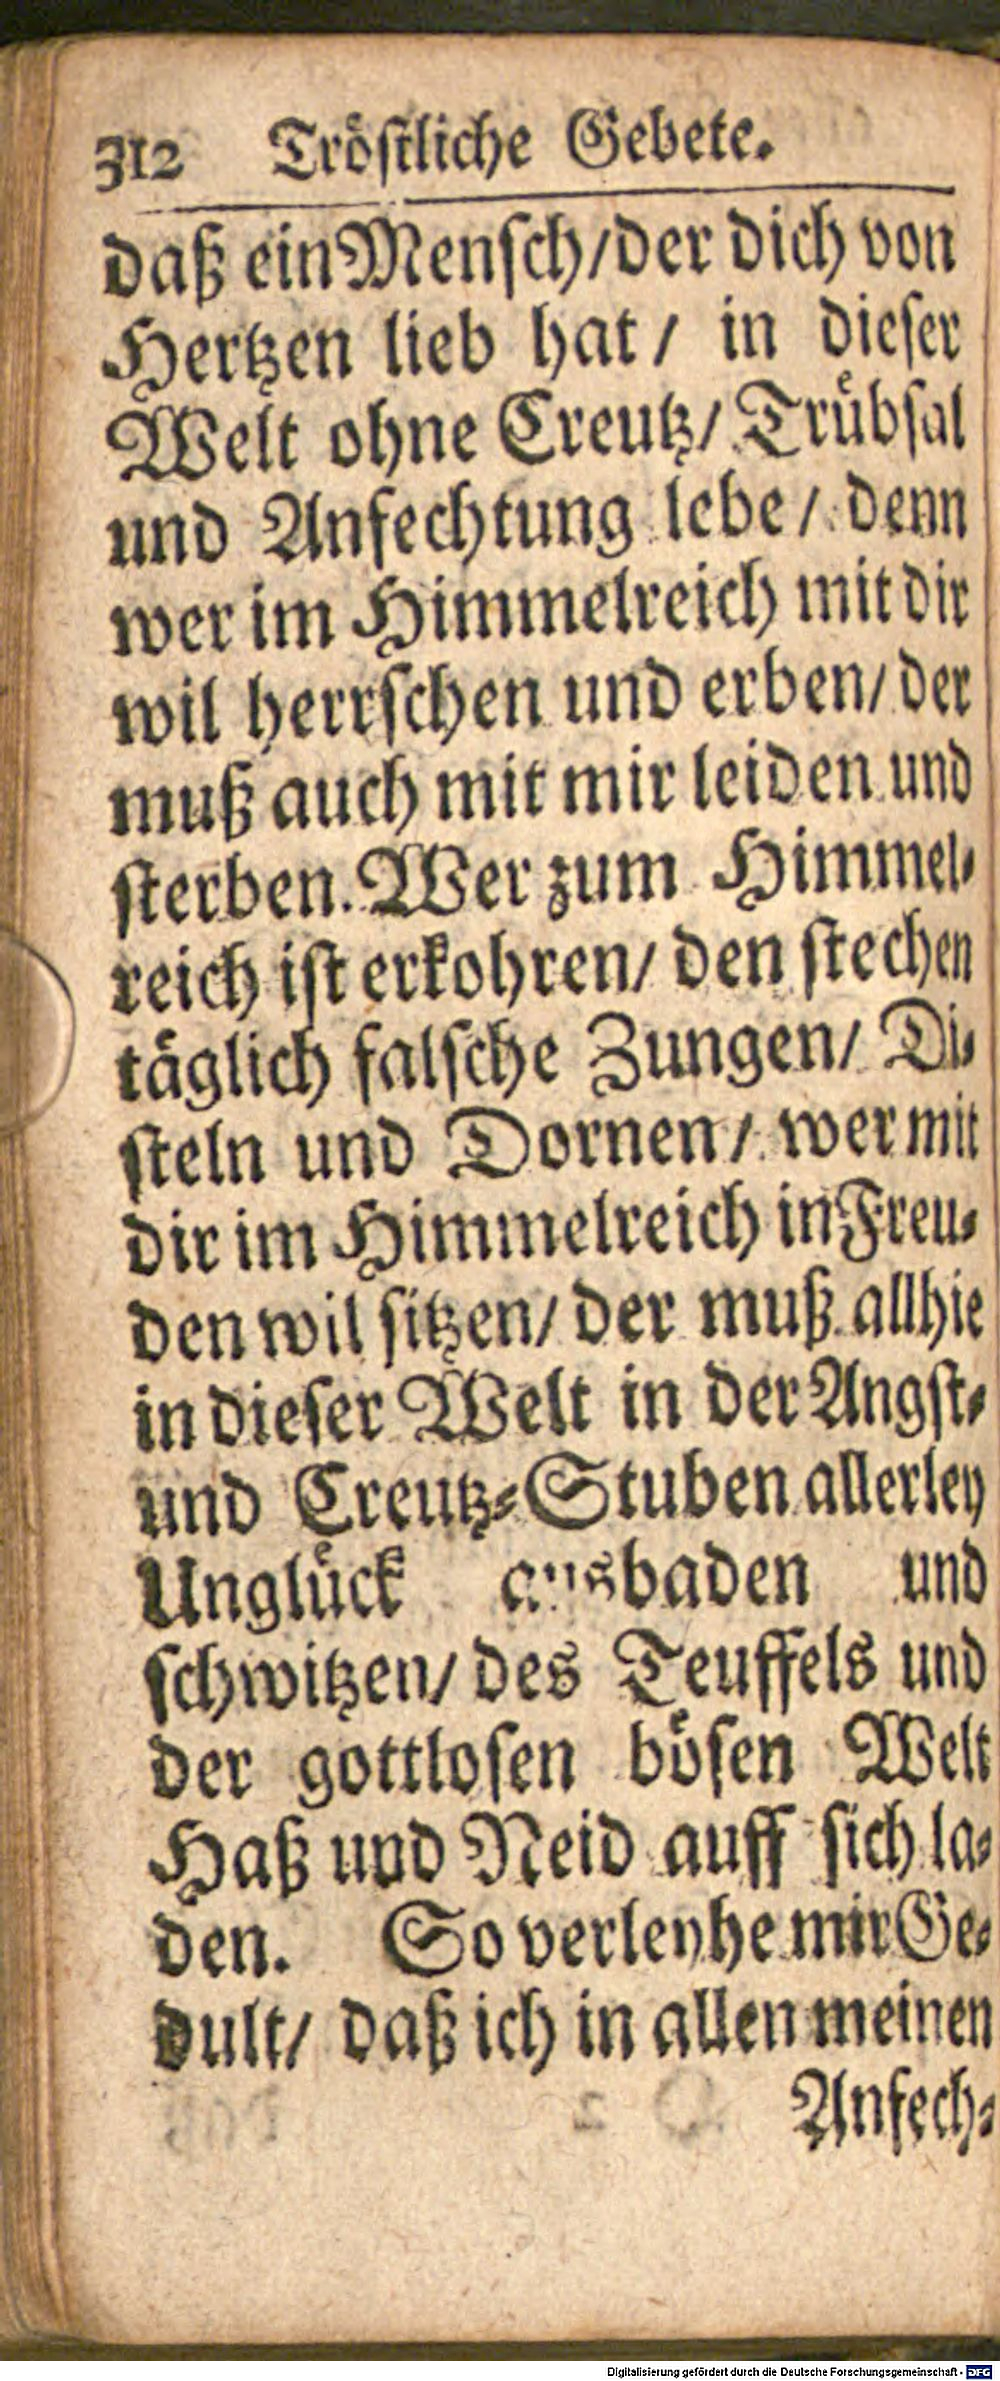 312 Tröstliche Gebete.
daß ein Mensch/ der dich von
Hertzen lieb hat/ in dieser
Welt ohne Creutz/ Trübsal
und Anfechtung lebe/ denn
wer im Himmelreich mit dir
wil herrschen und erben/ der
muß auch mit mir leiden und
sterben. Wer zum Himmel-
reich ist erkohren/ den stechen
täglich falsche Zungen/ Di-
steln und Dornen/ wer mit
dir im Himmelreich in Freu-
den wil sitzen/ der muß allhie
in dieser Welt in der Angst-
und Creutz-Stuben allerley
Unglück ausbaden und
schwitzen/ des Teuffels und
der gottlosen bösen Welt
Haß und Neid auff sich la-
den. So verleyhe mir Ge-
dult/ daß ich in allen meinen
Anfech-
Digitalisierung gefördert durch die Deutsche Forschungsgemeinschaft - DFG